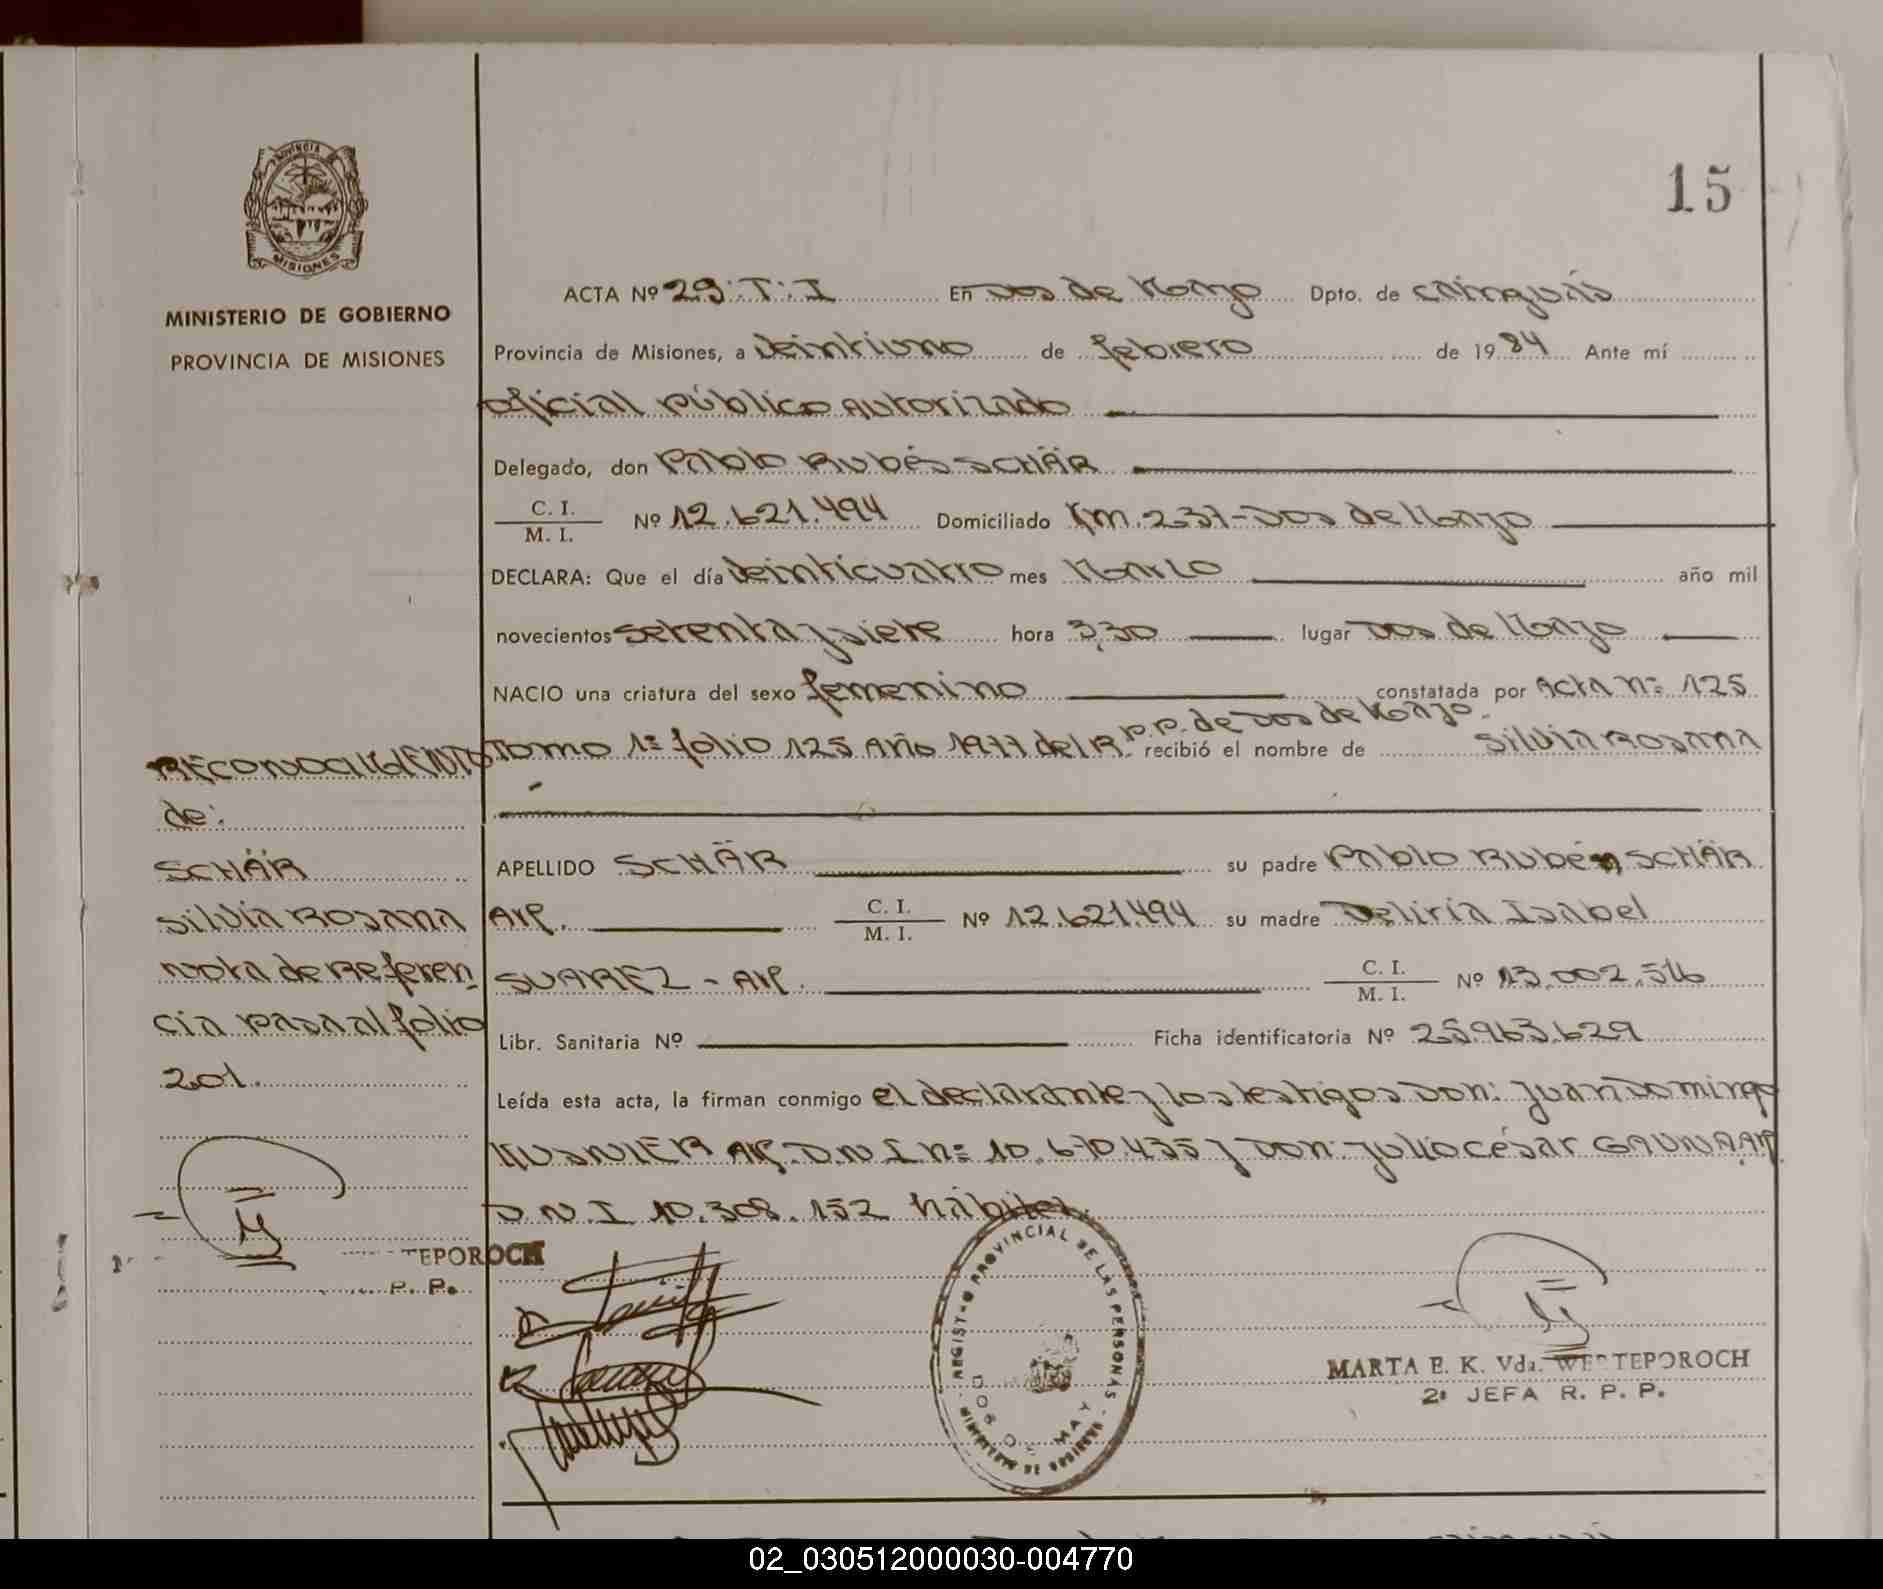 15
PROVINCIA DE
MISIONES
MINISTERIO DE GOBIERNO
PROVINCIA DE MISIONES
ACTA Nº 29. T. I En Dos de Mayo Dpto. de Cainguás
Provincia de Misiones, a veintiuno de febrero de 1984 Ante mí
oficial público autorizado
Delegado, don Pablo Rubés SCHÄR
C. I.
M. I. Nº 12.621.494 Domiciliado Km. 237-Dos de Mayo
DECLARA: Que el día veinticuatro mes Marzo año mil
novecientos setenta y siete hora 3,30 lugar Dos de Mayo
NACIO una criatura del sexo femenino constatada por Acta nº 125
Tomo 1º folio 125 Año 1977 del R.P.P. de Dos de Mayo. recibió el nombre de Silvia Rosana
APELLIDO SCHÄR su padre Pablo Rubén SCHÄR
Arg. C. I.
M. I. Nº 12.621.494 su madre Deliria Isabel
SUAREZ - Arg. C. I.
M. I. Nº 13.002.516
Libr. Sanitaria Nº Ficha identificatoria Nº 25.963.629
Leída esta acta, la firman conmigo el declarante y los testigos Don: Juan Domingo
Arg. D.N.I nº 10.670.435 y Don: Julio César GAUNA Arg
D.N.I 10.308.152 hábiles.
RECONOCIMIENTO
de:
SCHÄR
Silvia Rosana
Nota de Referen
cia pasa al folio
201.
TEPOROCH
P. P.
REGISTRO PROVINCIAL DE LAS PERSONAS
MINISTERIO DE GOBIERNO
DOS DE MAYO
MARTA E. K. Vda. WERTEPOROCH
2ª JEFA R. P. P.
02_030512000030-004770